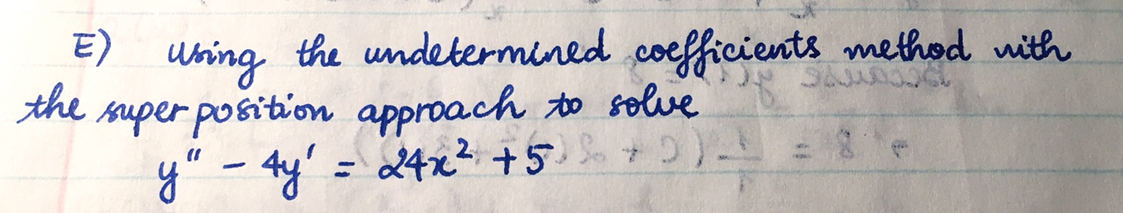 E) Using the undetermined coefficients method with
the superposition approach to solve
y" - 4y' = 24x² + 5